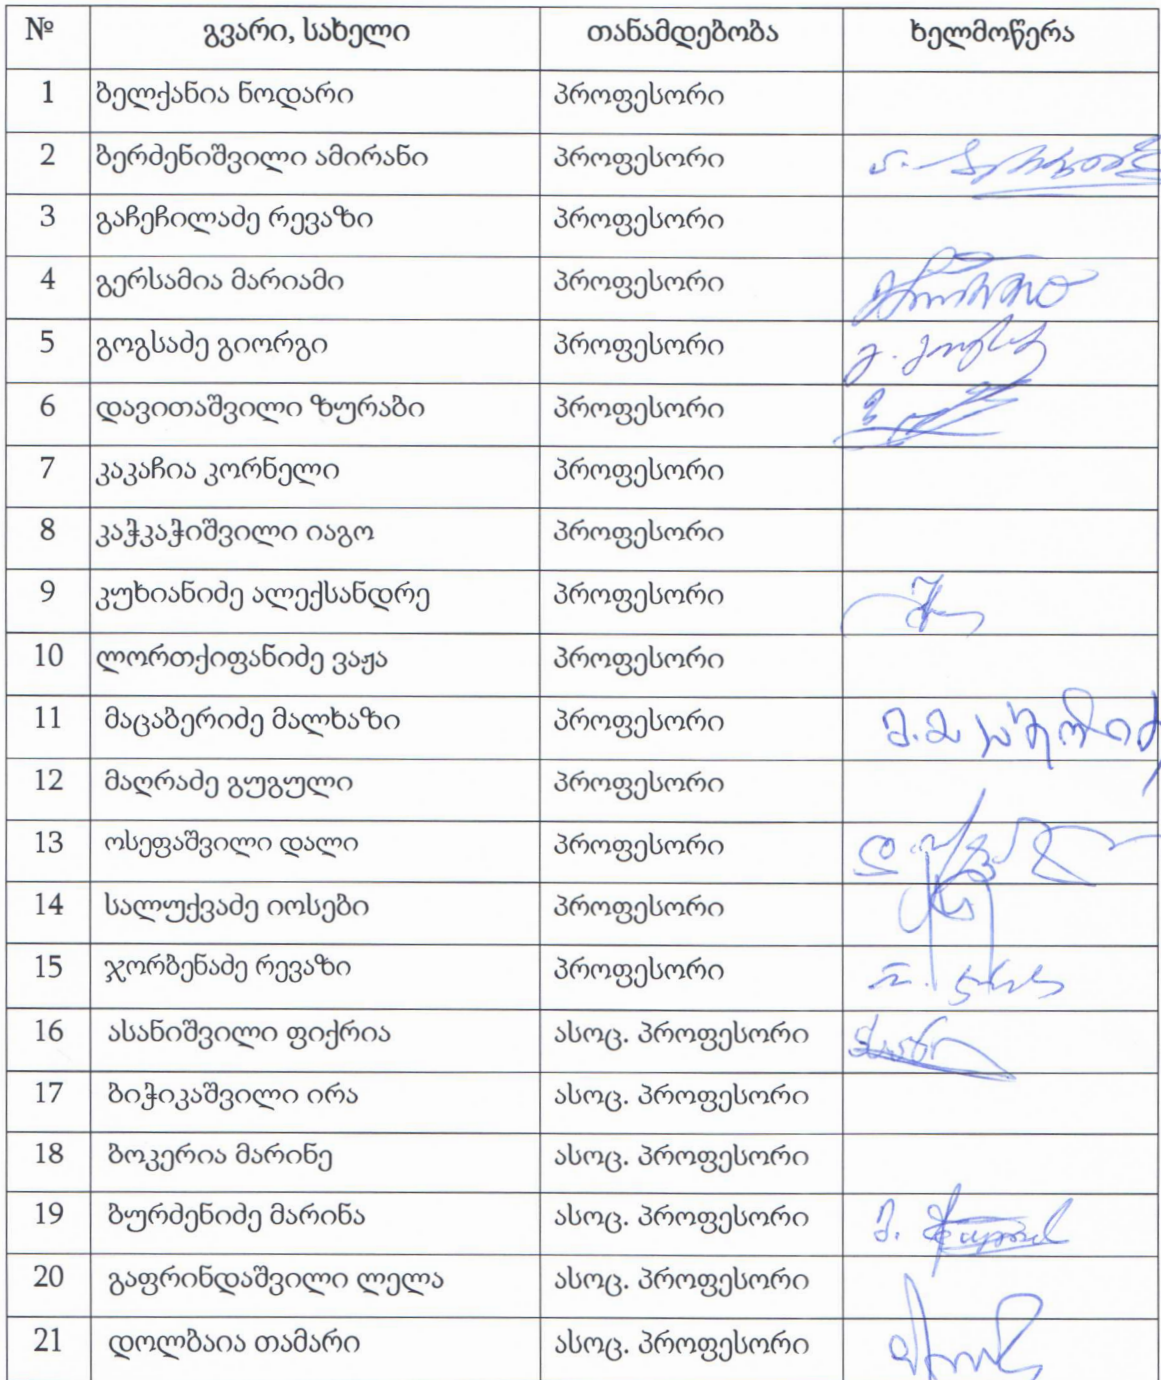 № გვარი, სახელი თანამდებობა ხელმოწერა
1 ბელქანია ნოდარი პროფესორი
2 ბერძენიშვილი ამირანი პროფესორი
3 გაჩეჩილაძე რევაზი პროფესორი
4 გერსამია მარიამი პროფესორი
5 გოგსაძე გიორგი პროფესორი
6 დავითაშვილი ზურაბი პროფესორი
7 კაკაჩია კორნელი პროფესორი
8 კაჭკაჭიშვილი იაგო პროფესორი
9 კუხიანიძე ალექსანდრე პროფესორი
10 ლორთქიფანიძე ვაჟა პროფესორი
11 მაცაბერიძე მალხაზი პროფესორი
12 მაღრაძე გუგული პროფესორი
13 ოსეფაშვილი დალი პროფესორი
14 სალუქვაძე იოსები პროფესორი
15 ჯორბენაძე რევაზი პროფესორი
16 ასანიშვილი ფიქრია ასოც. პროფესორი
17 ბიჭიკაშვილი ირა ასოც. პროფესორი
18 ბოკერია მარინე ასოც. პროფესორი
19 ბურძენიძე მარინა ასოც. პროფესორი
20 გაფრინდაშვილი ლელა ასოც. პროფესორი
21 დოლბაია თამარი ასოც. პროფესორი